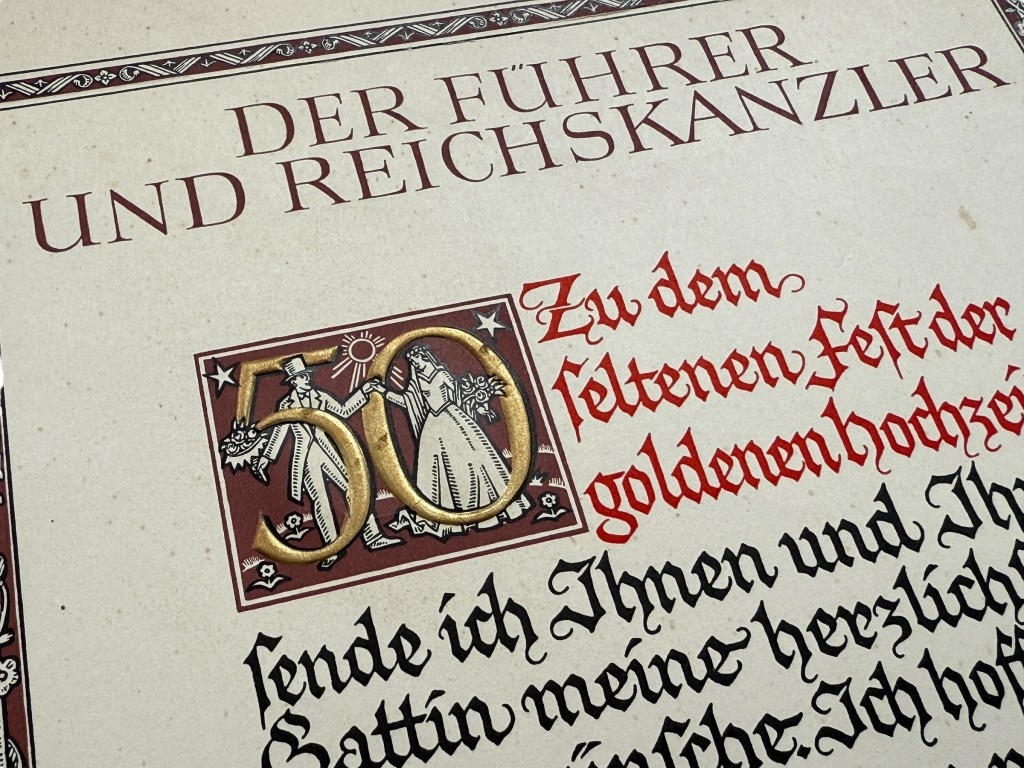 DER FÜHRER
UND REICHSKANZLER
50
Zu dem
seltenen Fest der
goldenen Hochzei
sende ich Ihnen und Ih
Gattin meine herzlich
Ich hof